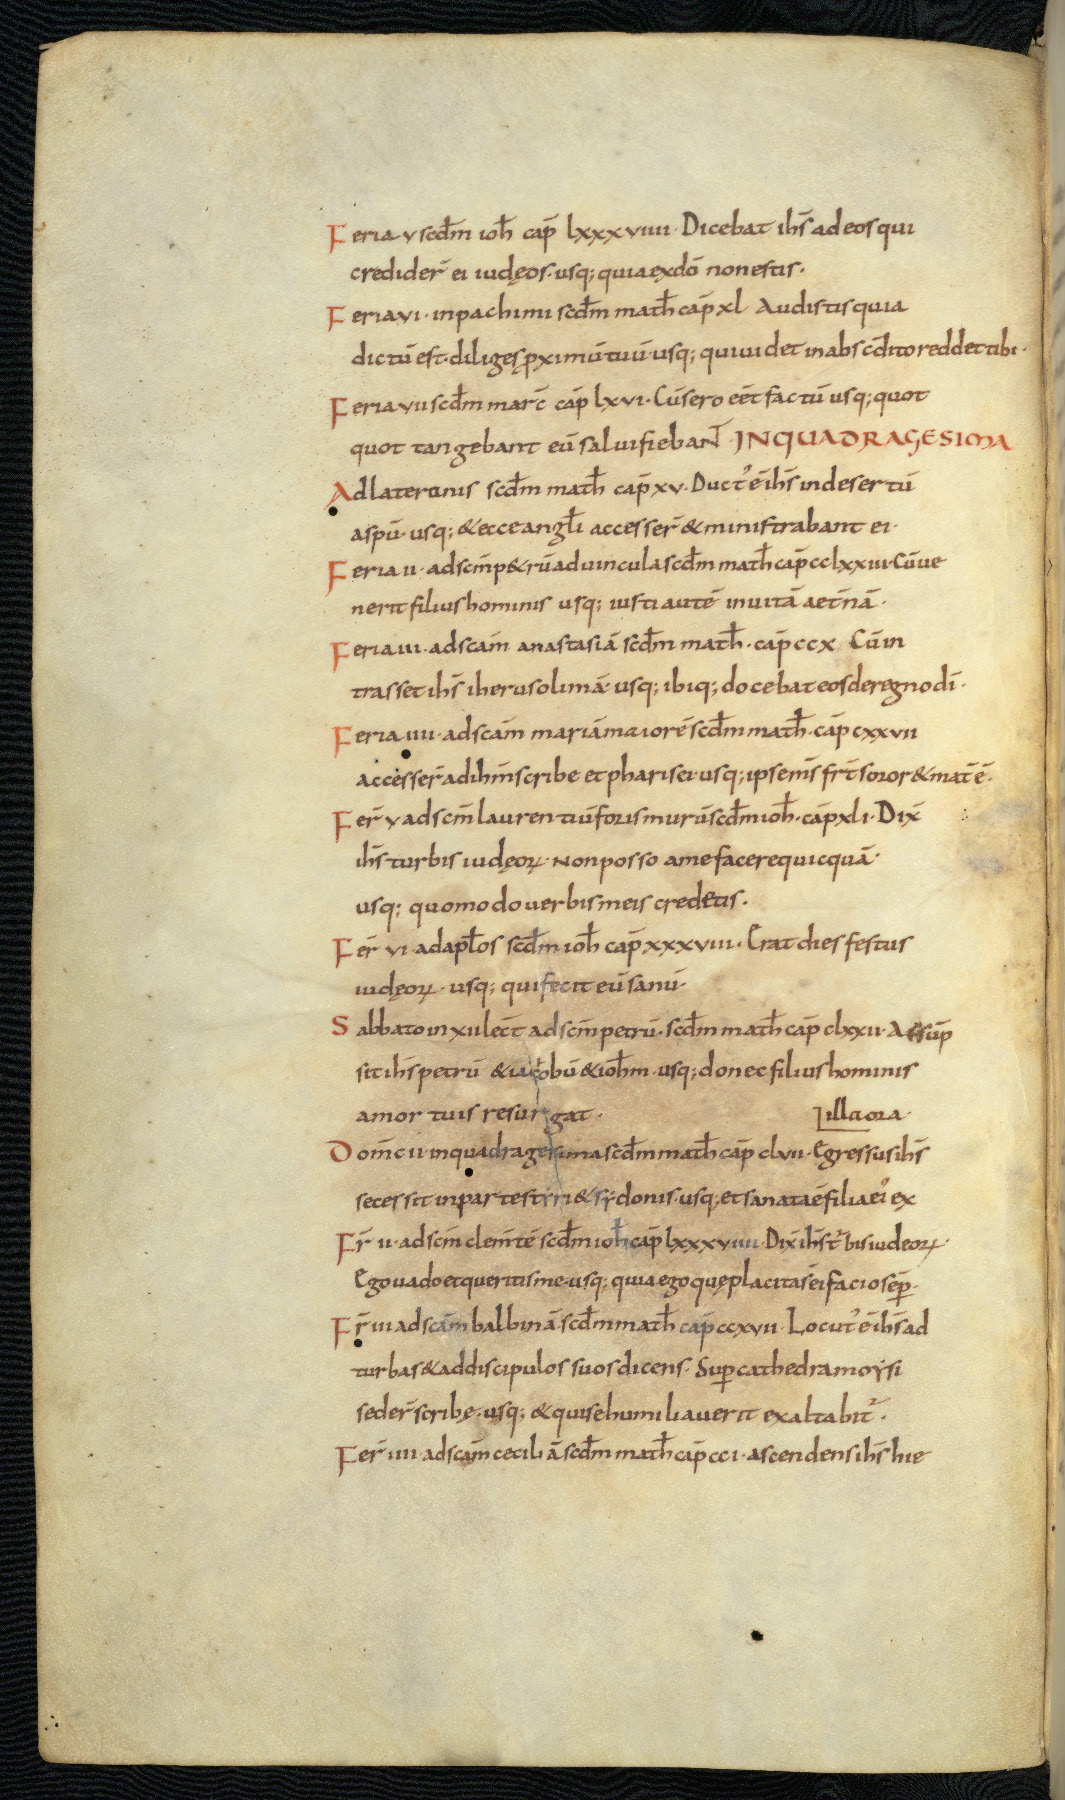 Feria v scdm̄ ioh̄ cap̄ lxxxviiii · Dicebat ih̄s ad eos qui
credider̄ ei iudęos · usq; quia ex dō non estis ·
Feria vi · in pachimi scdm̄ math̄ cap̄ xl Audistis quia
dictū est · diliges ꝓximū tuū · usq; qui uidet in abscōdito reddet tibi ·
Feria vii scdm̄ marc̄ cap̄ lxvi · Cū sero eēt factū usq; quot
quot tangebant eū salui fiebant · IN QUADRAGESIMA
Ad lateranis scdm̄ math̄ cap̄ xv · Duct᾽ ē ih̄s in desertū
a sp̄u · usq; & ecce angl̄i accesser̄ & ministrabant ei ·
Feria ii · ad scm̄ p&rū ad uincula scdm̄ math̄ cap̄ cclxxiii · Cū ue
nerit filius hominis usq; iusti autē in uitā aet̄nā ·
Feria iii · ad scam̄ anastasiā scdm̄ math̄ · cap̄ ccx Cū in
trasset ih̄s iherusolimā · usq; ibiq; docebat eos de regno dī ·
Feria iiii · ad scam̄ mariā maiorē scdm̄ math̄ · cap̄ cxxvii
accesser̄ ad ih̄m scribe et pharisei · usq; ipse m̄s fr̄t soror & mat̄ ē ·
Fer̄ v ad scm̄ laurentiū foris murū scdm̄ ioh̄ · cap̄ xli · Dix̄
ih̄s turbis iudęoꝝ · Non posso a me facere quicquā ·
usq; quomodo uerbis meis credetis ·
Fer̄ vi ad apl̄os scdm̄ ioh̄ cap̄ xxxviii · Erat dies festus
iudęoꝝ · usq; qui fecit eū sanū ·
Sabbato in xii lect̄ ad scm̄ petrū · scdm̄ math̄ cap̄ clxxii · Assūp
sit ih̄s petrū & iacobū & ioh̄m · usq; donec filius hominis
a mortuis resurgat · In illa ora ·
Domc̄ ii in quadragesima scdm̄ math̄ cap̄ clvii · Egressus ih̄s
secessit in partes tyri & sydonis · usq; et sanata ē filia ei᾽ ex
Fr̄ ii · ad scm̄ clem̄tē scdm̄ ioh̄ cap̄ lxxxviiii · Dix̄ ih̄s t᾽bis iudeoꝝ ·
Ego uado et queritis me · usq; quia ego quę placita s̄ ei facio sēꝑ ·
Fr̄ iii ad scam̄ balbinā · scdm̄ math̄ cap̄ ccxvii · Locut᾽ ē ih̄s ad
turbas & ad discipulos suos dicens · Suꝑ cathedra moysi
seder̄ scribę · usq; & qui se humiliauerit exaltabit᾽ ·
Fer̄ iiii ad scam̄ ceciliā scdm̄ math̄ cap̄ cci · ascendens ih̄s hie